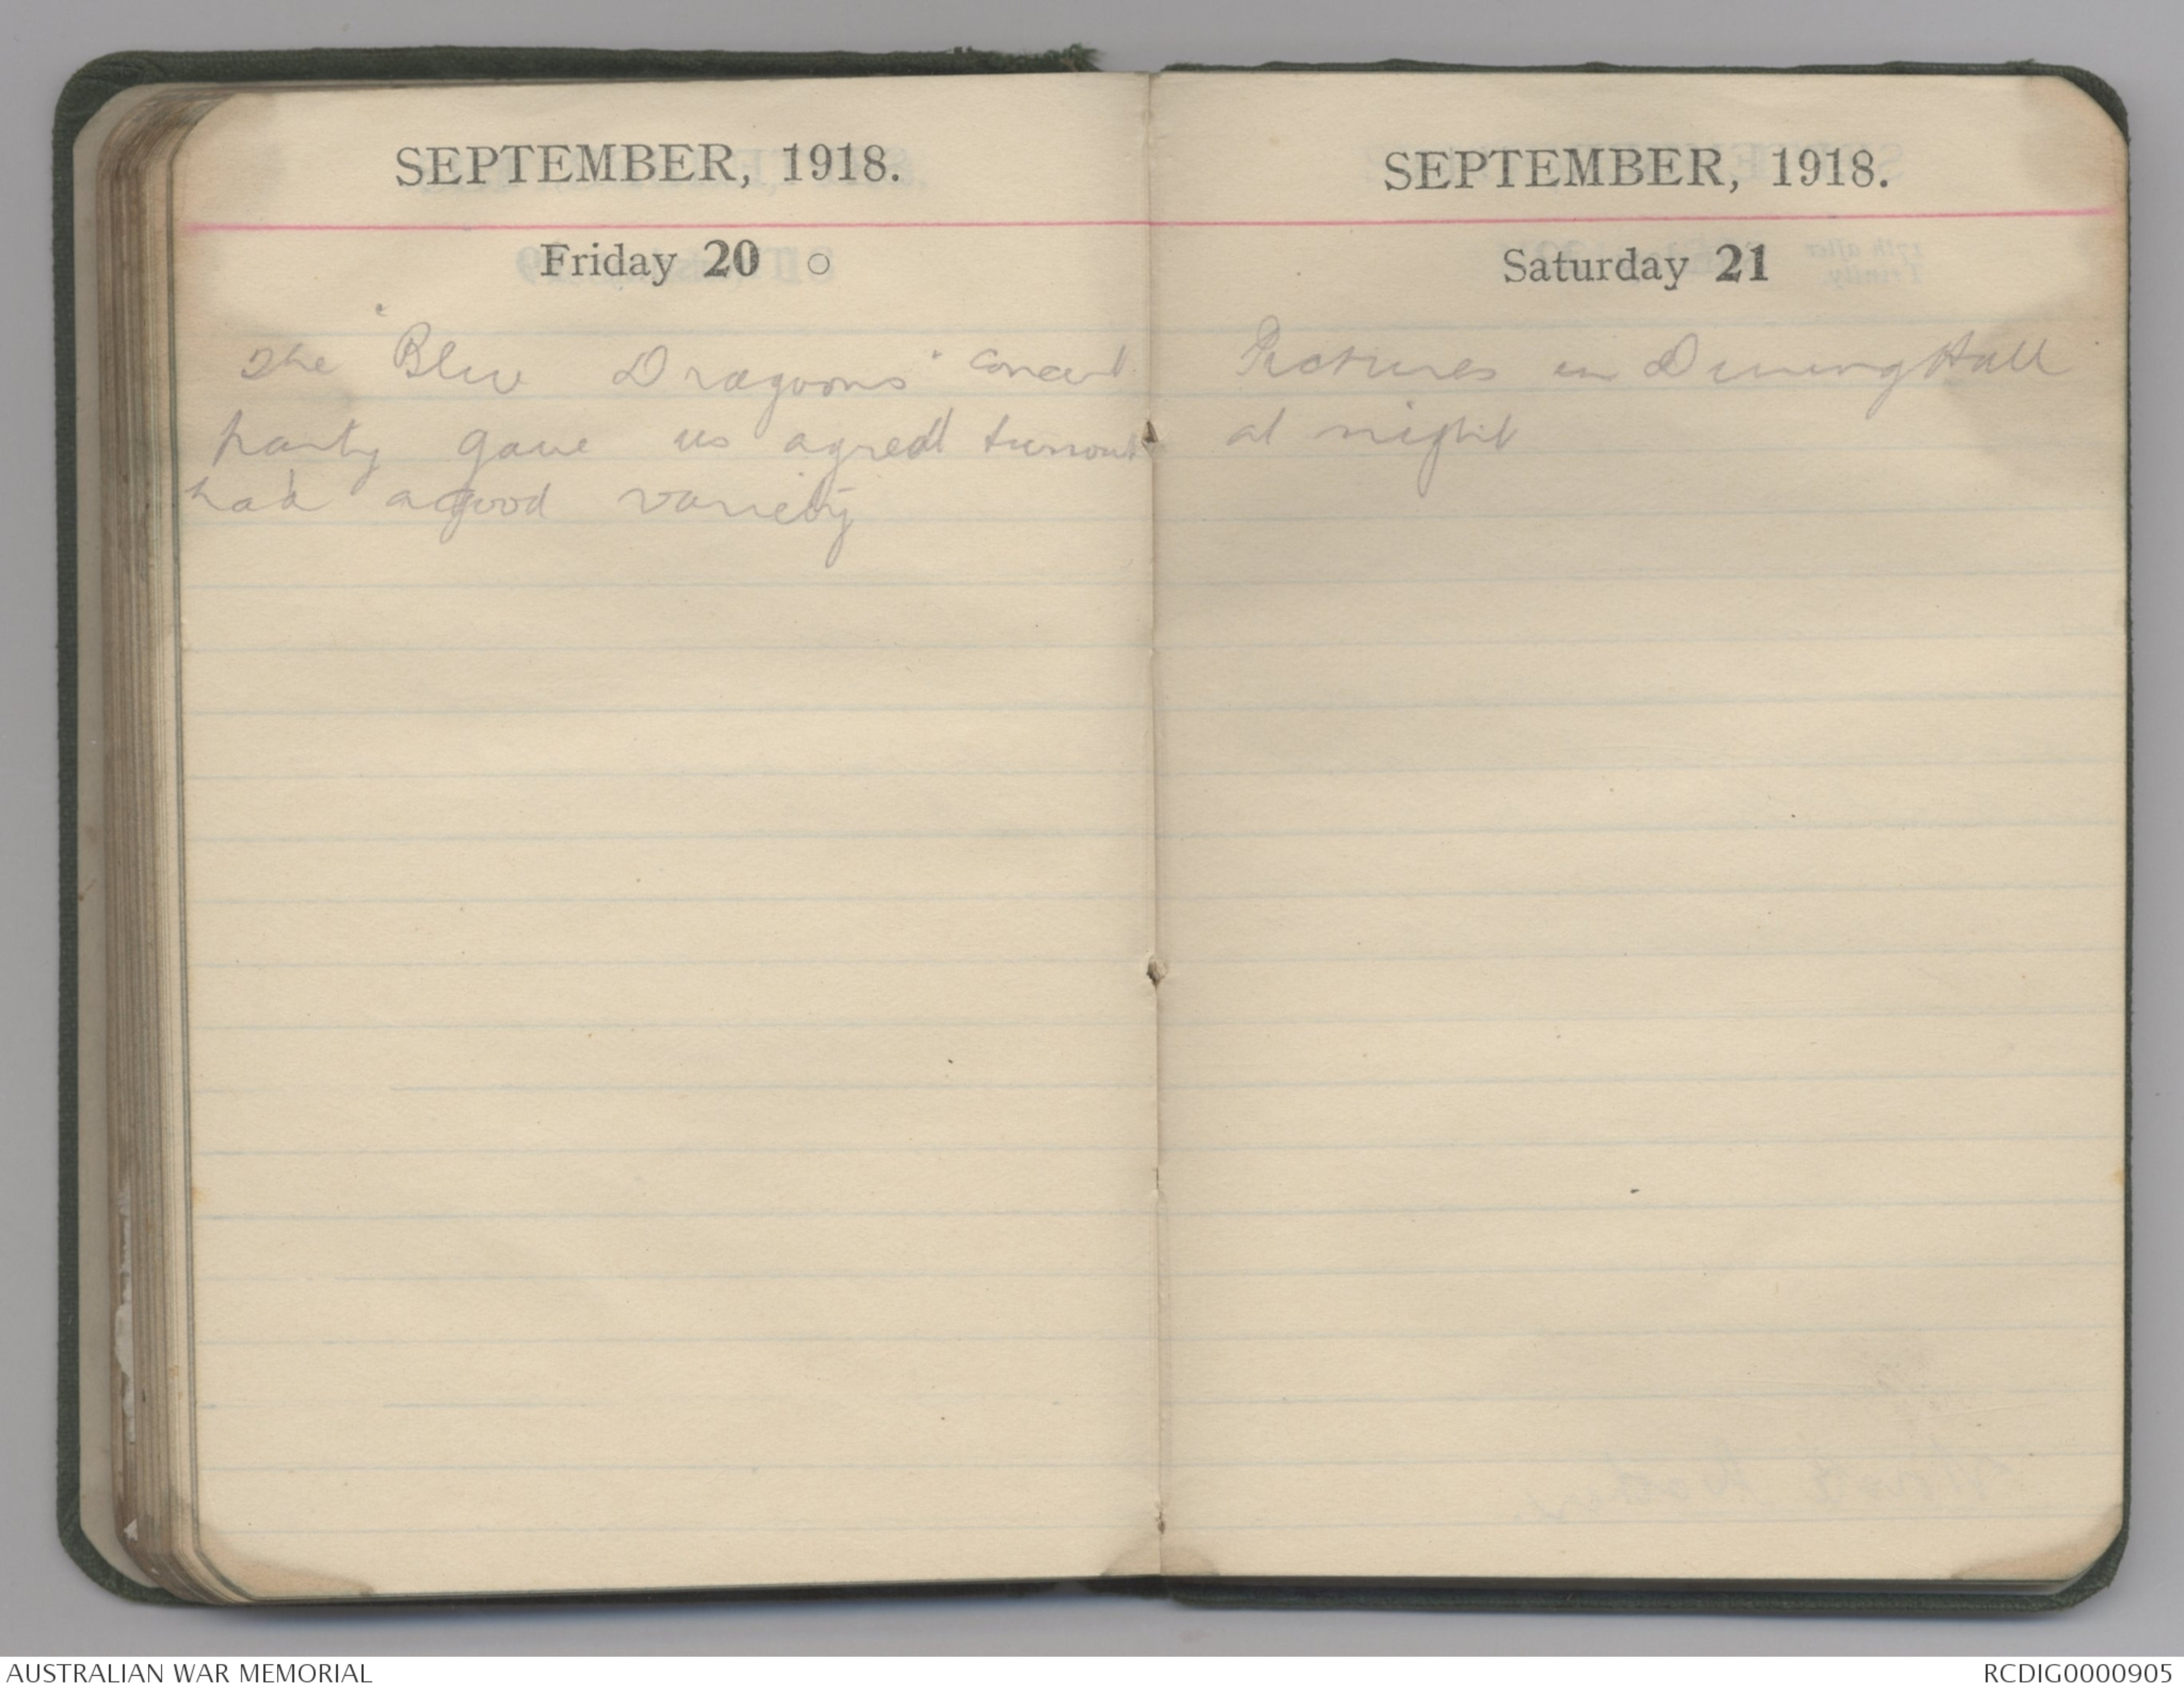 SEPTEMBER, 1918.
Friday 20 ○
The "Blue Dragoons" concert
party gave us a great turnout
had a good variety
SEPTEMBER, 1918.
Saturday 21
Pictures in Dining Hall
at night
AUSTRALIAN WAR MEMORIAL
RCDIG0000905